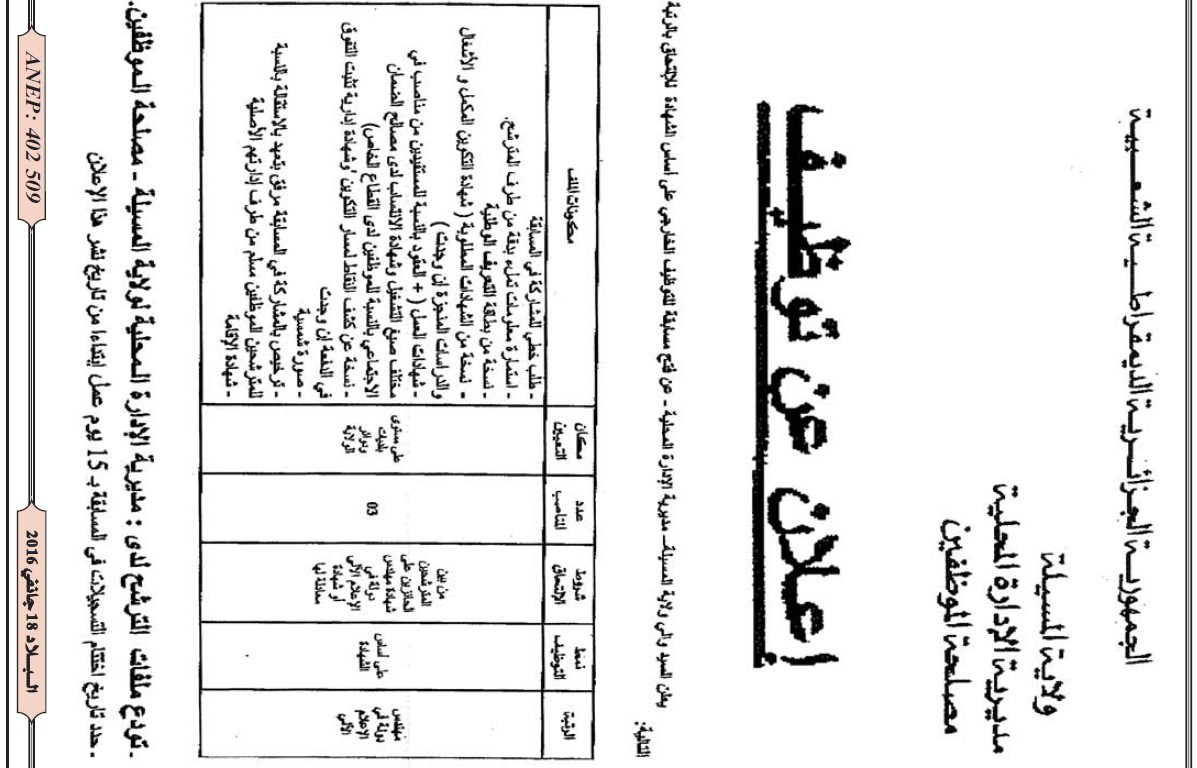 الجمهورية الجزائرية الديمقراطية الشعبية
ولاية المسيلة
مديرية الإدارة المحلية
مصلحة الموظفين
إعلان عن توظيف
يعلن السيد والي ولاية المسيلة - مديرية الإدارة المحلية - عن فتح مسابقة للتوظيف الخارجي على أساس الشهادة للإلتحاق بالرتبة
التالية:
الرتبة
نمط
التوظيف
شروط
الالتحاق
عدد
المناصب
مكان
التعيين
مكونات الملف
مهندس
دولة في
الإعلام
الآلي
على أساس
الشهادة
من بين
المترشحين
الحائزين على
شهادة مهندس
دولة في
الإعلام الآلي
أو شهادة
معادلة لها
03
على مستوى
بلديات
ودوائر
الولاية
- طلب خطي للمشاركة في المسابقة
- استمارة معلومات تملء بدقة من طرف المترشح.
- نسخة من بطاقة التعريف الوطنية
- نسخة من الشهادات المطلوبة ( شهادة التكوين المكمل و الأشغال
والدراسات المنجزة إن وجدت )
- شهادات العمل ( + العقود بالنسبة للمستفيدين من مناصب في
مختلف صيغ التشغيل وشهادة الانتساب لدى مصالح الضمان
الاجتماعي بالنسبة للموظفين لدى القطاع الخاص)
- نسخة عن كشف النقاط لمسار التكوين وشهادة إدارية تثبت التفوق
في الدفعة إن وجدت
- صورة شمسية
- ترخيص بالمشاركة في المسابقة مرفق بتعهد بالاستقالة بالنسبة
للمترشحين الموظفين مسلم من طرف إدارتهم الأصلية
- شهادة الإقامة
. تودع ملفات الترشح لدى : مديرية الإدارة المحلية لولاية المسيلة - مصلحة الموظفين.
. حدد تاريخ اختتام التسجيلات في المسابقة بـ 15 يوم عمل ابتداءا من تاريخ نشر هذا الإعلان
البلاد 18 جانفي 2016
ANEP: 402 509